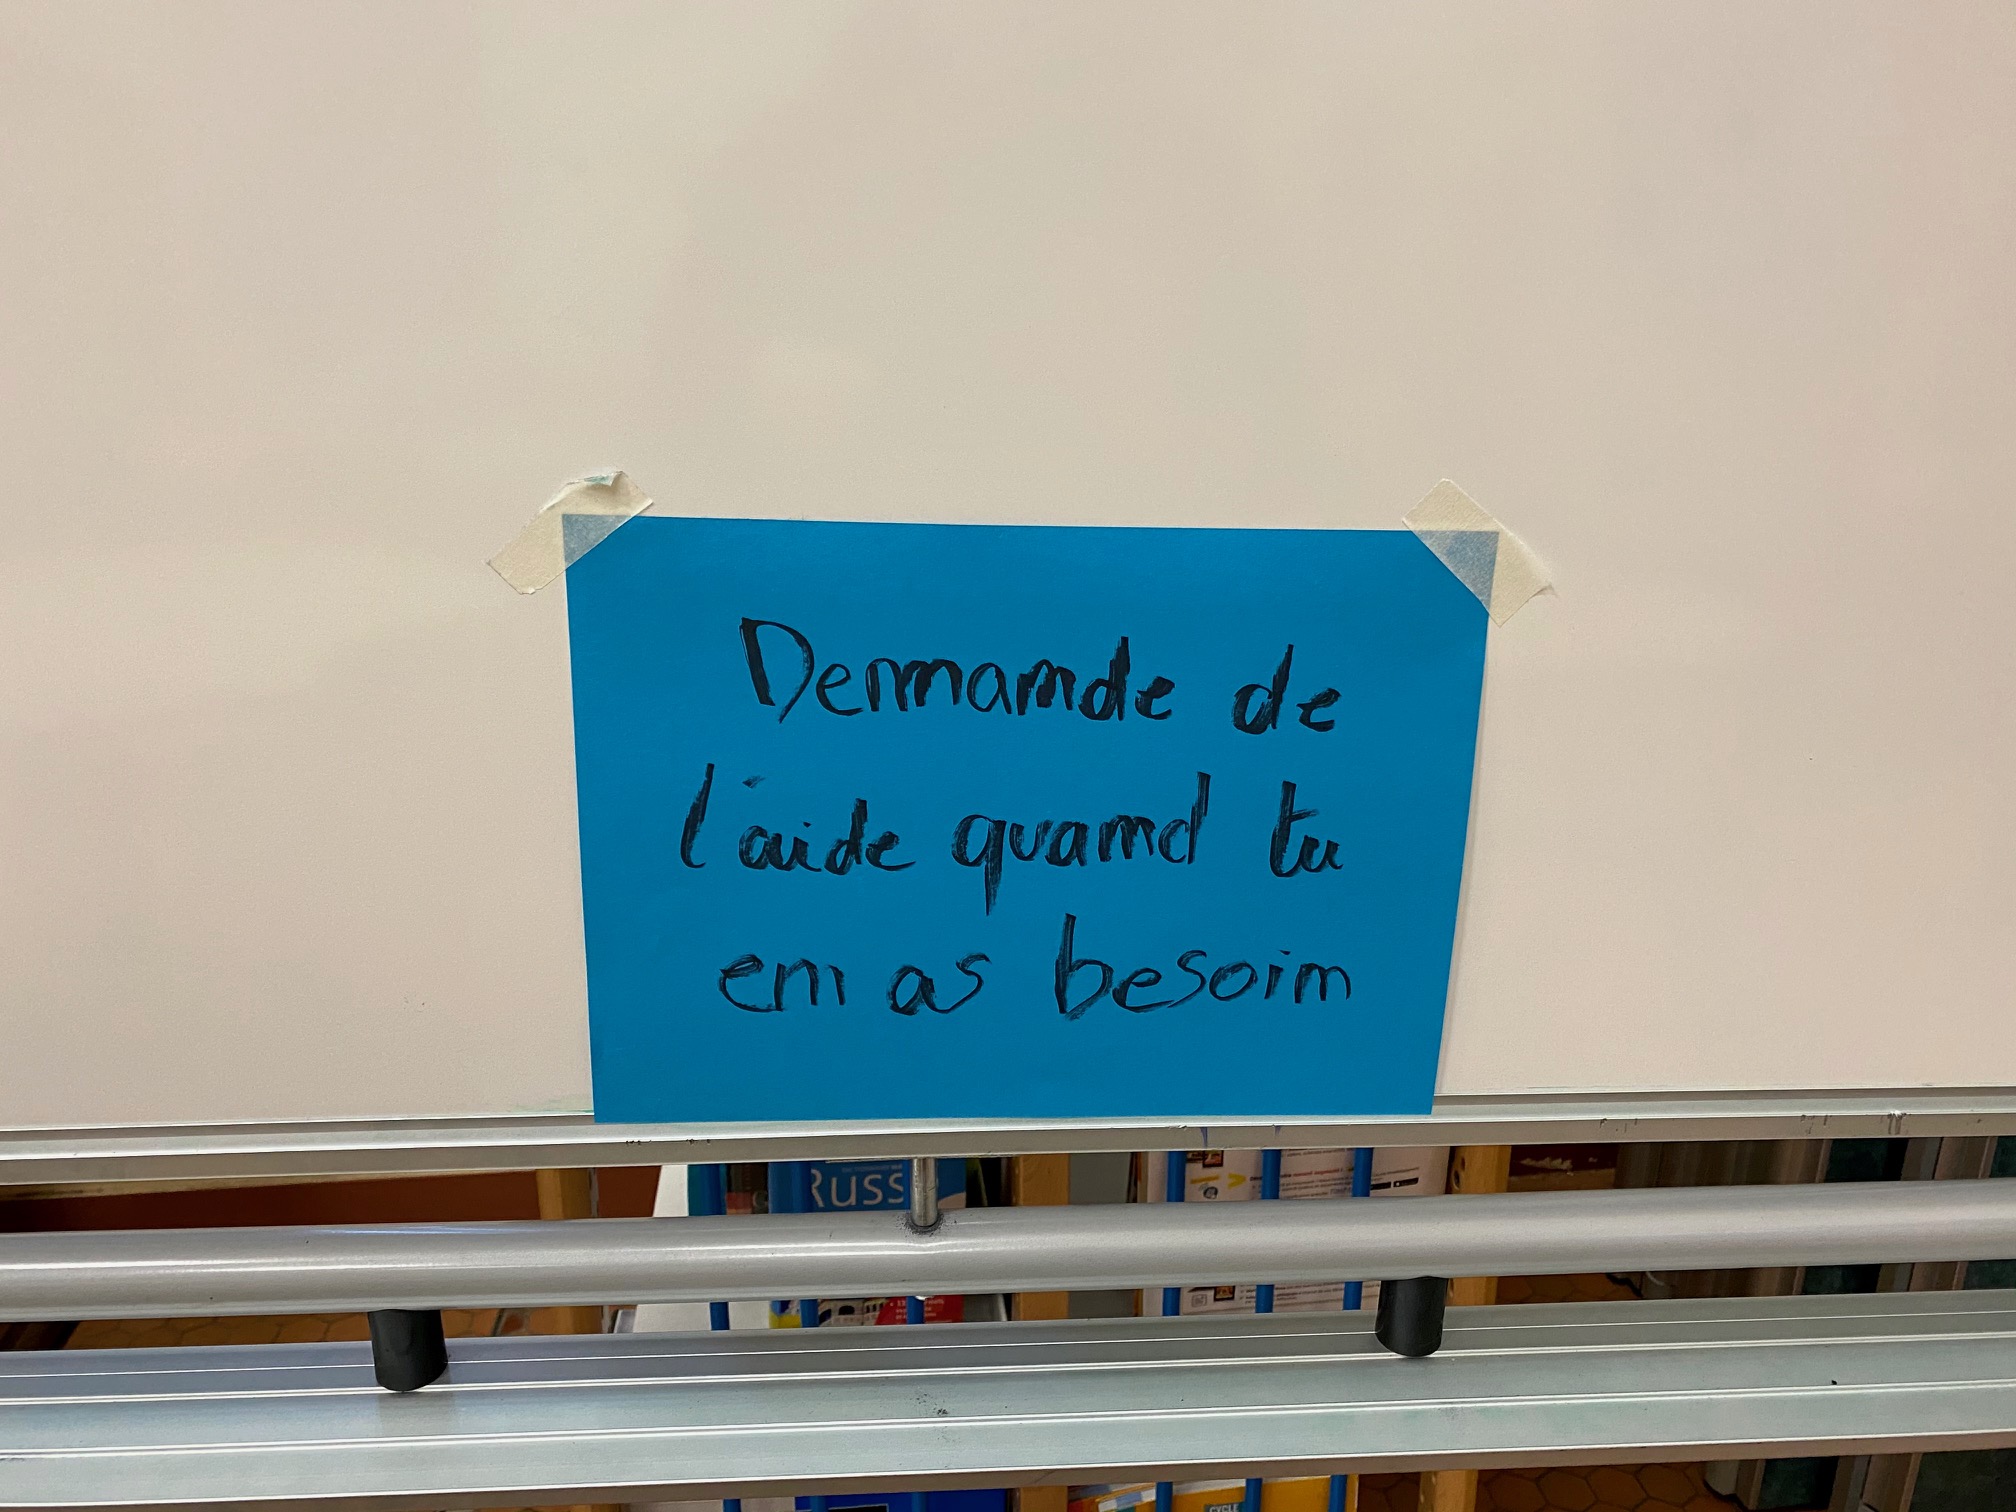 Demande de
l'aide quand tu
en as besoin
Russ
CYCLE